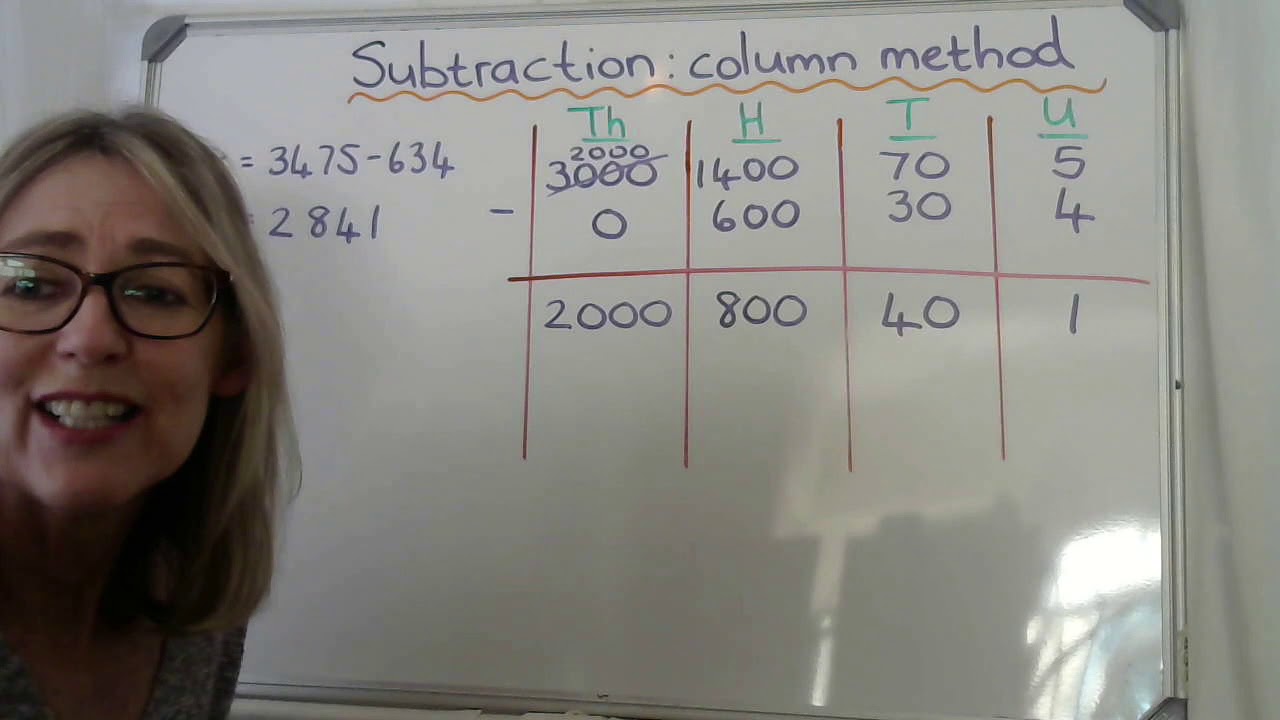 Subtraction: column method
Th H T U
= 3475-634
2000
3000 1400 70 5
= 2841
- 0 600 30 4
2000 800 40 1